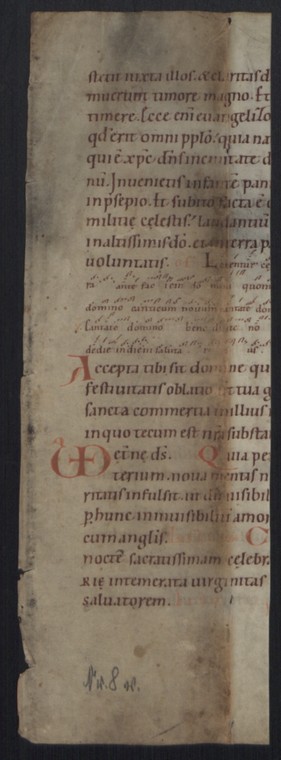 stetit iuxta illos. & claritas d
muerunt timore magno. Et
timere. Ecce eni euangelizo
qd erit omni pplo. quia na
qui ē xp̄c dn̄s in ciuitate d
Inuenietis infantē pan
in p̄sepio. Et subito facta ē c
militię cęlestis. laudantiū
in altissimis dō. et in terra p
uoluntatis. Lętentur cę
ra ante faciem domini quoni
domino canticum nouum cantate do
Cantate domino benedicite no
dedie in diem saluta re ius.
Accepta tibi sit domine qu
festiuitatis oblatio ut tua g
sancta commercia in illius
in quo tecum est nr̄a substan
etn̄e ds̄. Quia per
terium. noua mentis n
ritatis infulsit. ut dū uisibil
p̄ hunc in inuisibiliū amor
cum anglis. C
noctē sacratissimam cęlebr
Rię intemerata uirginitas
saluatorem.
Nr. 8 w.